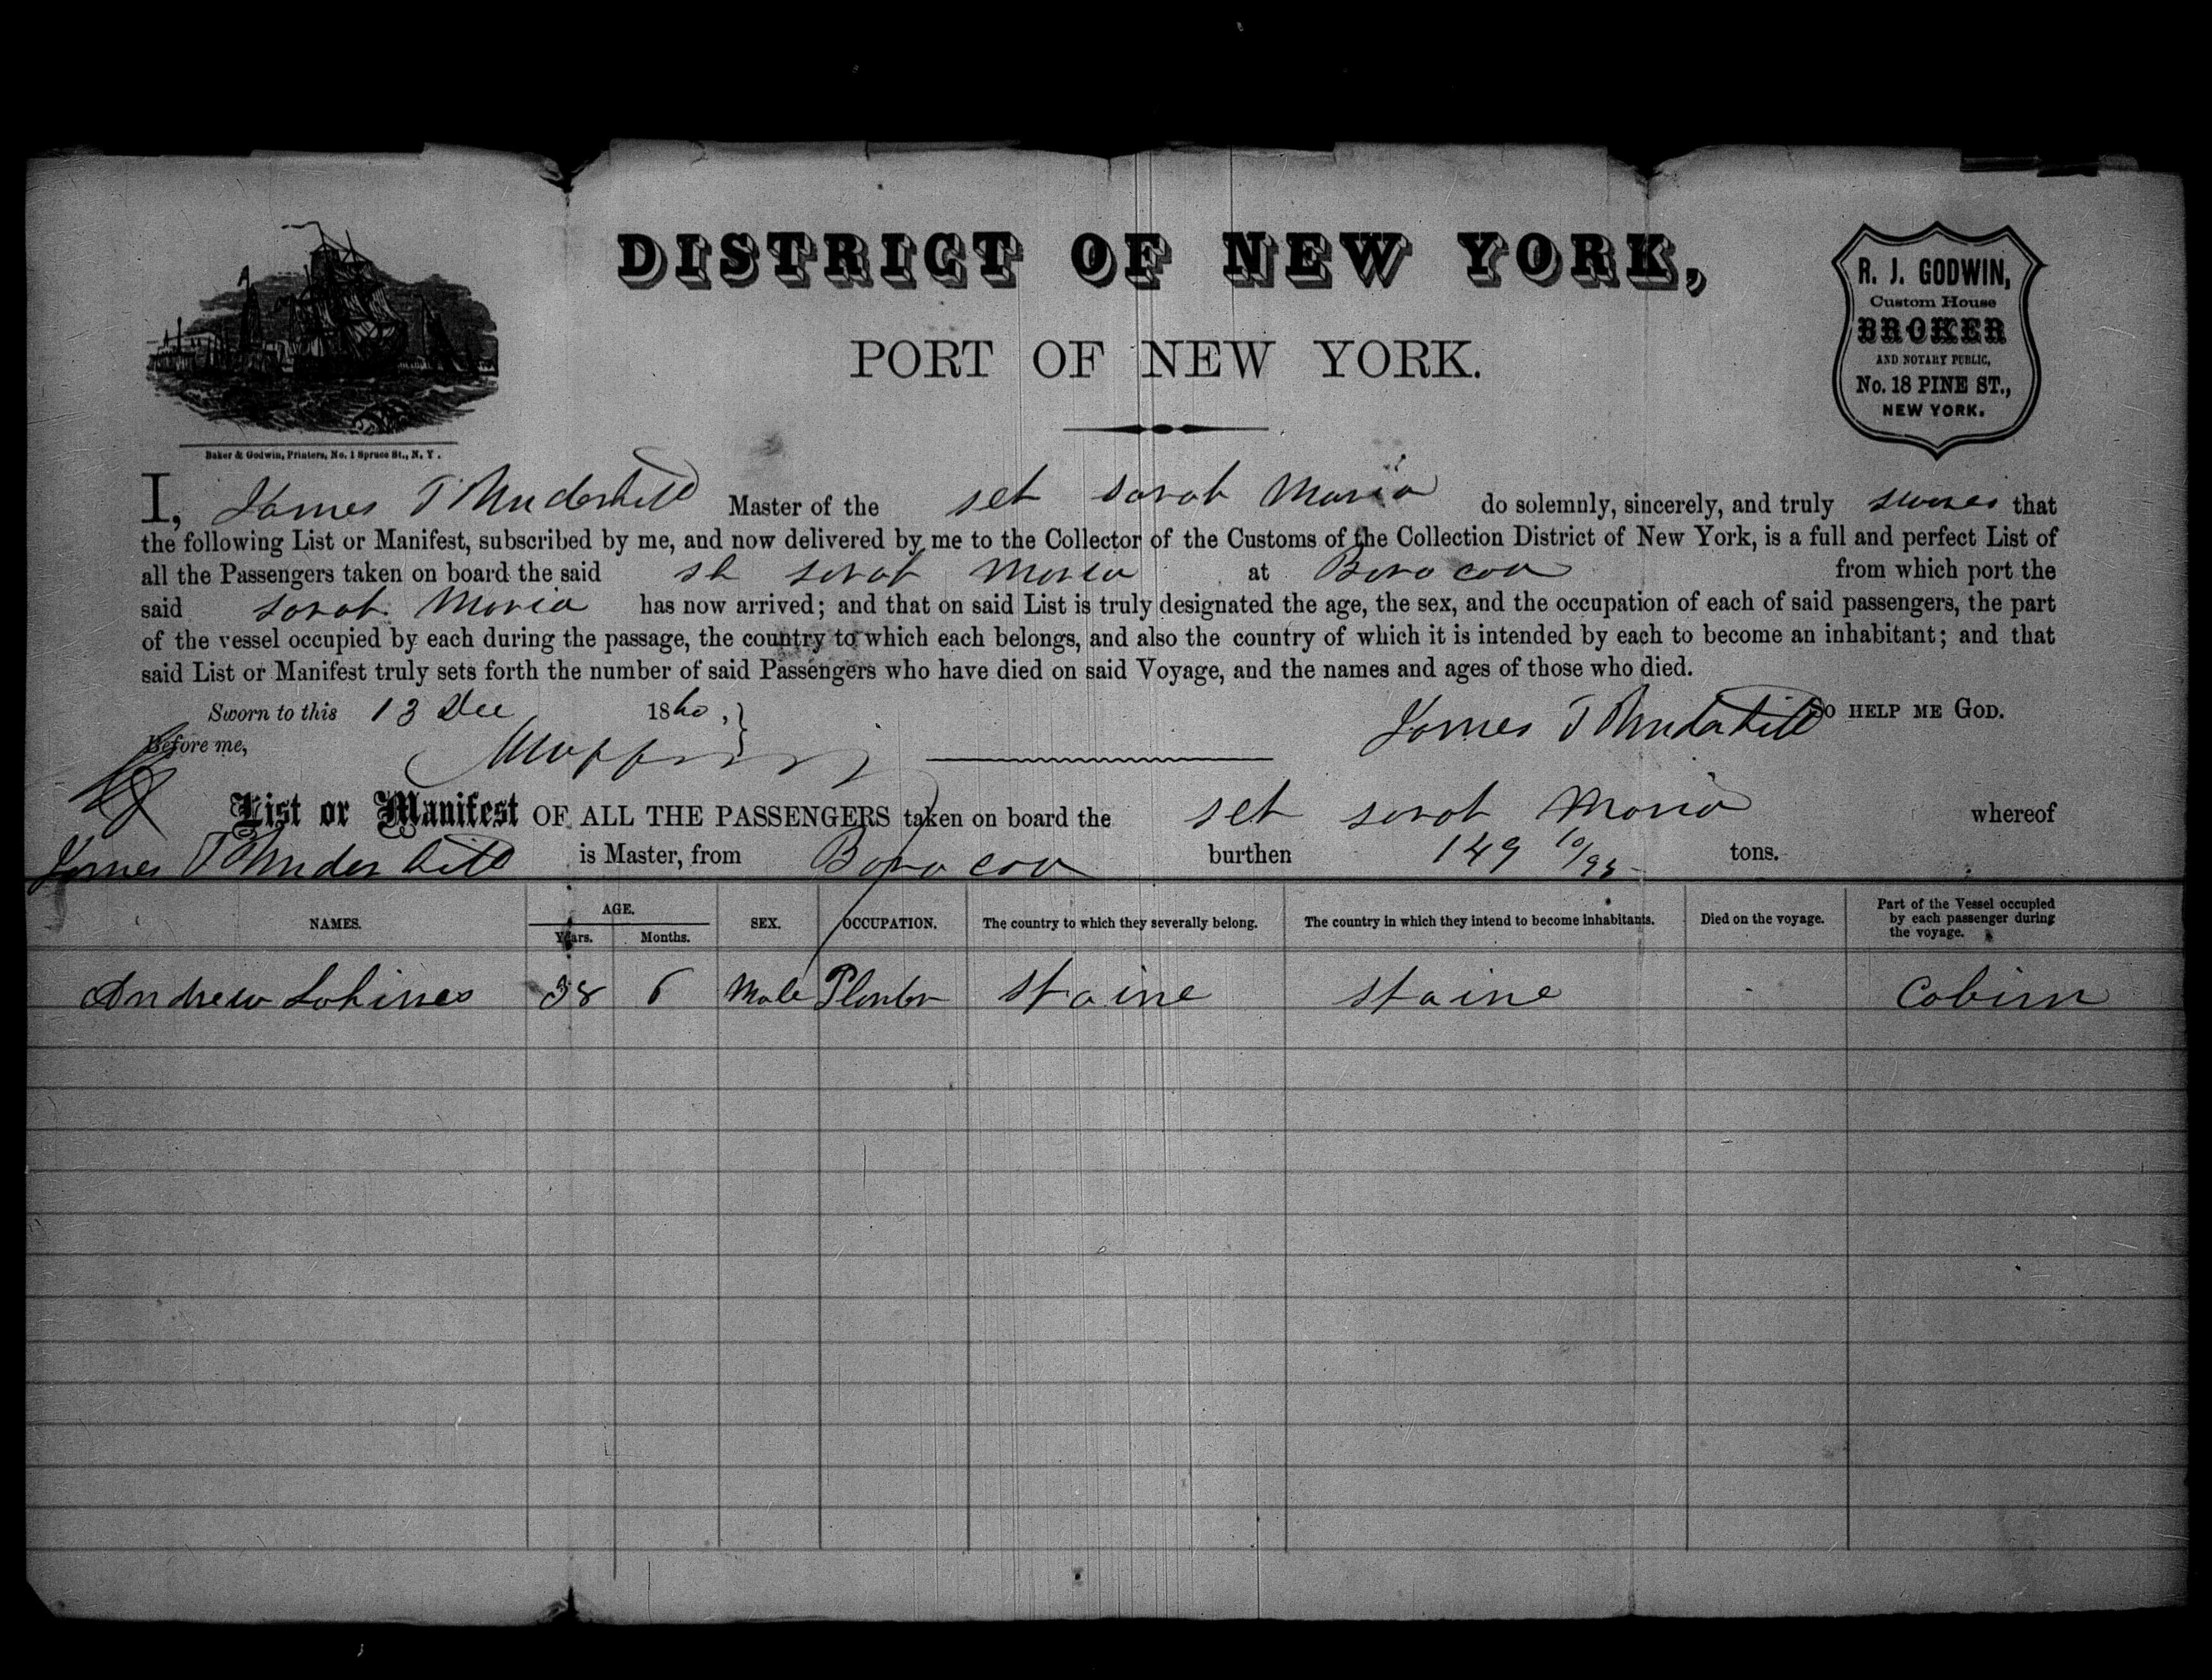 DISTRICT OF NEW YORK,
PORT OF NEW YORK.
R. J. GODWIN,
Custom House
BROKER
AND NOTARY PUBLIC,
No. 18 PINE ST.,
NEW YORK.
Baker & Godwin, Printers, No. 1 Spruce St., N. Y.
I, James T Underhill Master of the sch Sarah Maria do solemnly, sincerely, and truly swear that
the following List or Manifest, subscribed by me, and now delivered by me to the Collector of the Customs of the Collection District of New York, is a full and perfect List of
all the Passengers taken on board the said sh Sarah Maria at Baracoa from which port the
said Sarah Maria has now arrived; and that on said List is truly designated the age, the sex, and the occupation of each of said passengers, the part
of the vessel occupied by each during the passage, the country to which each belongs, and also the country of which it is intended by each to become an inhabitant; and that
said List or Manifest truly sets forth the number of said Passengers who have died on said Voyage, and the names and ages of those who died.
Sworn to this 13 Dec 1860, James T Underhill SO HELP ME GOD.
Before me,
List or Manifest OF ALL THE PASSENGERS taken on board the sch Sarah Maria whereof
James T Underhill is Master, from Baracoa burthen 149 10/95 tons.
NAMES. AGE. Years. Months. SEX. OCCUPATION. The country to which they severally belong. The country in which they intend to become inhabitants. Died on the voyage. Part of the Vessel occupied by each passenger during the voyage.
Andrew 38 6 Male Planter Cabin